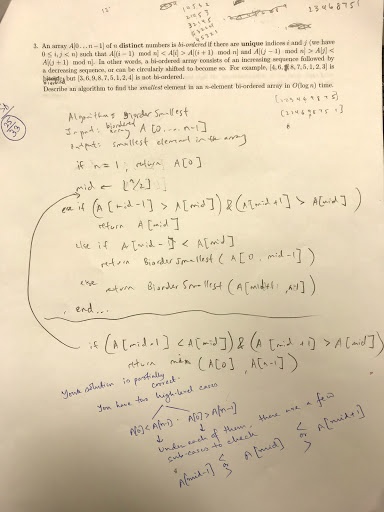 12
1 3 4 6 8 7 5 1
3. An array A[0...n − 1] of n distinct numbers is bi-ordered if there are unique indices i and j (we have
0 ≤ i, j < n) such that A[(i − 1) mod n] < A[i] > A[(i + 1) mod n] and A[(j − 1) mod n] > A[j] <
A[(j + 1) mod n]. In other words, a bi-ordered array consists of an increasing sequence followed by
a decreasing sequence, or can be circularly shifted to become so. For example, [4, 6, 8, 7, 5, 1, 2, 3] is
bi-ordered but [3, 6, 9, 8, 7, 5, 1, 2, 4] is not bi-ordered.
Describe an algorithm to find the smallest element in an n-element bi-ordered array in O(log n) time.
Algorithm: Biorder Smallest
Input: biordered array A[0...n-1]
Output: smallest element in the array
if n = 1, return A[0]
mid ← ⌊n/2⌋
else if (A[mid-1] > A[mid]) & (A[mid+1] > A[mid])
return A[mid]
else if A[mid-1] < A[mid]
return Biorder Smallest (A[0, mid-1])
else return Biorder Smallest (A[mid+1: n-1])
end...
if (A[mid-1] < A[mid]) & (A[mid+1] > A[mid])
return min (A[0], A[n-1])
Your solution is partially correct.
You have two high-level cases
A[0] < A[n-1] A[0] > A[n-1]
Under each of them, there are a few
sub-cases to check
A[mid-1] < or > A[mid] < or > A[mid+1]